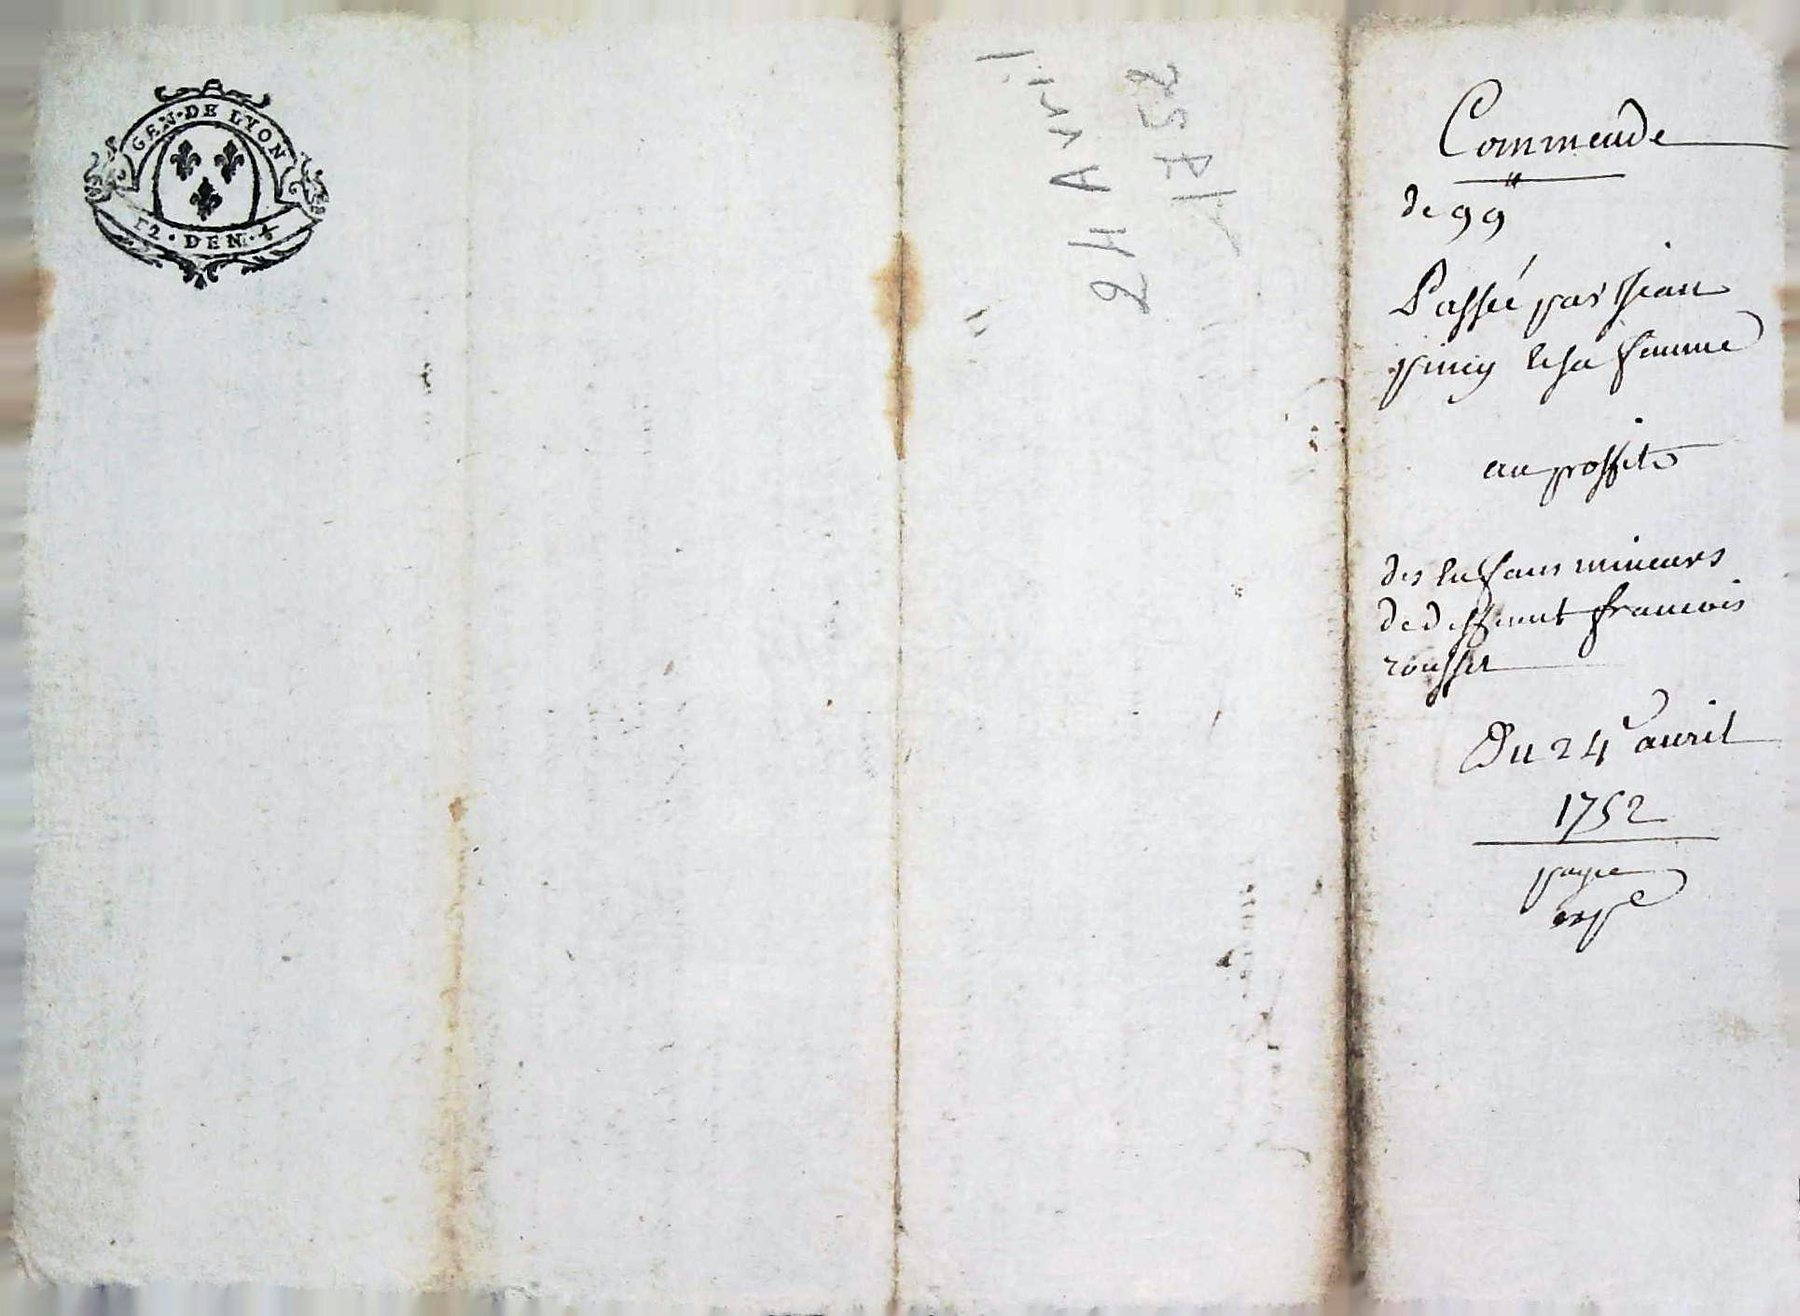 GEN·DE LYON
12·DEN·½
24 Avril
1752
Commende
de 99
Passée par Jean
et sa femme
au proffit
des enfans mineurs
de deffunt francois
rousset
Du 24e auril
1752
payé